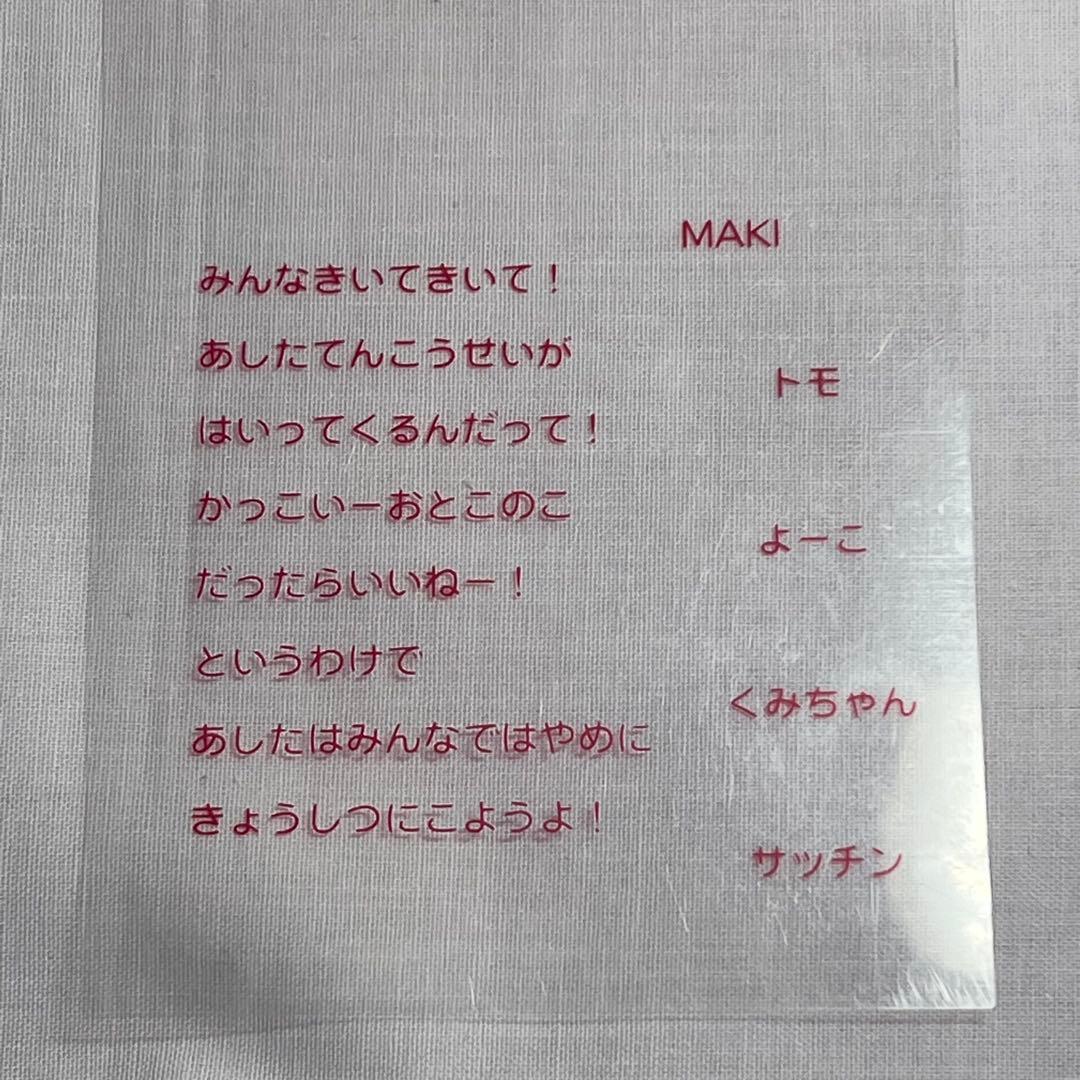 MAKI
みんなきいてきいて！
あしたてんこうせいが
トモ
はいってくるんだって！
かっこいーおとこのこ
よーこ
だったらいいねー！
というわけで
くみちゃん
あしたはみんなではやめに
きょうしつにこようよ！
サッチン